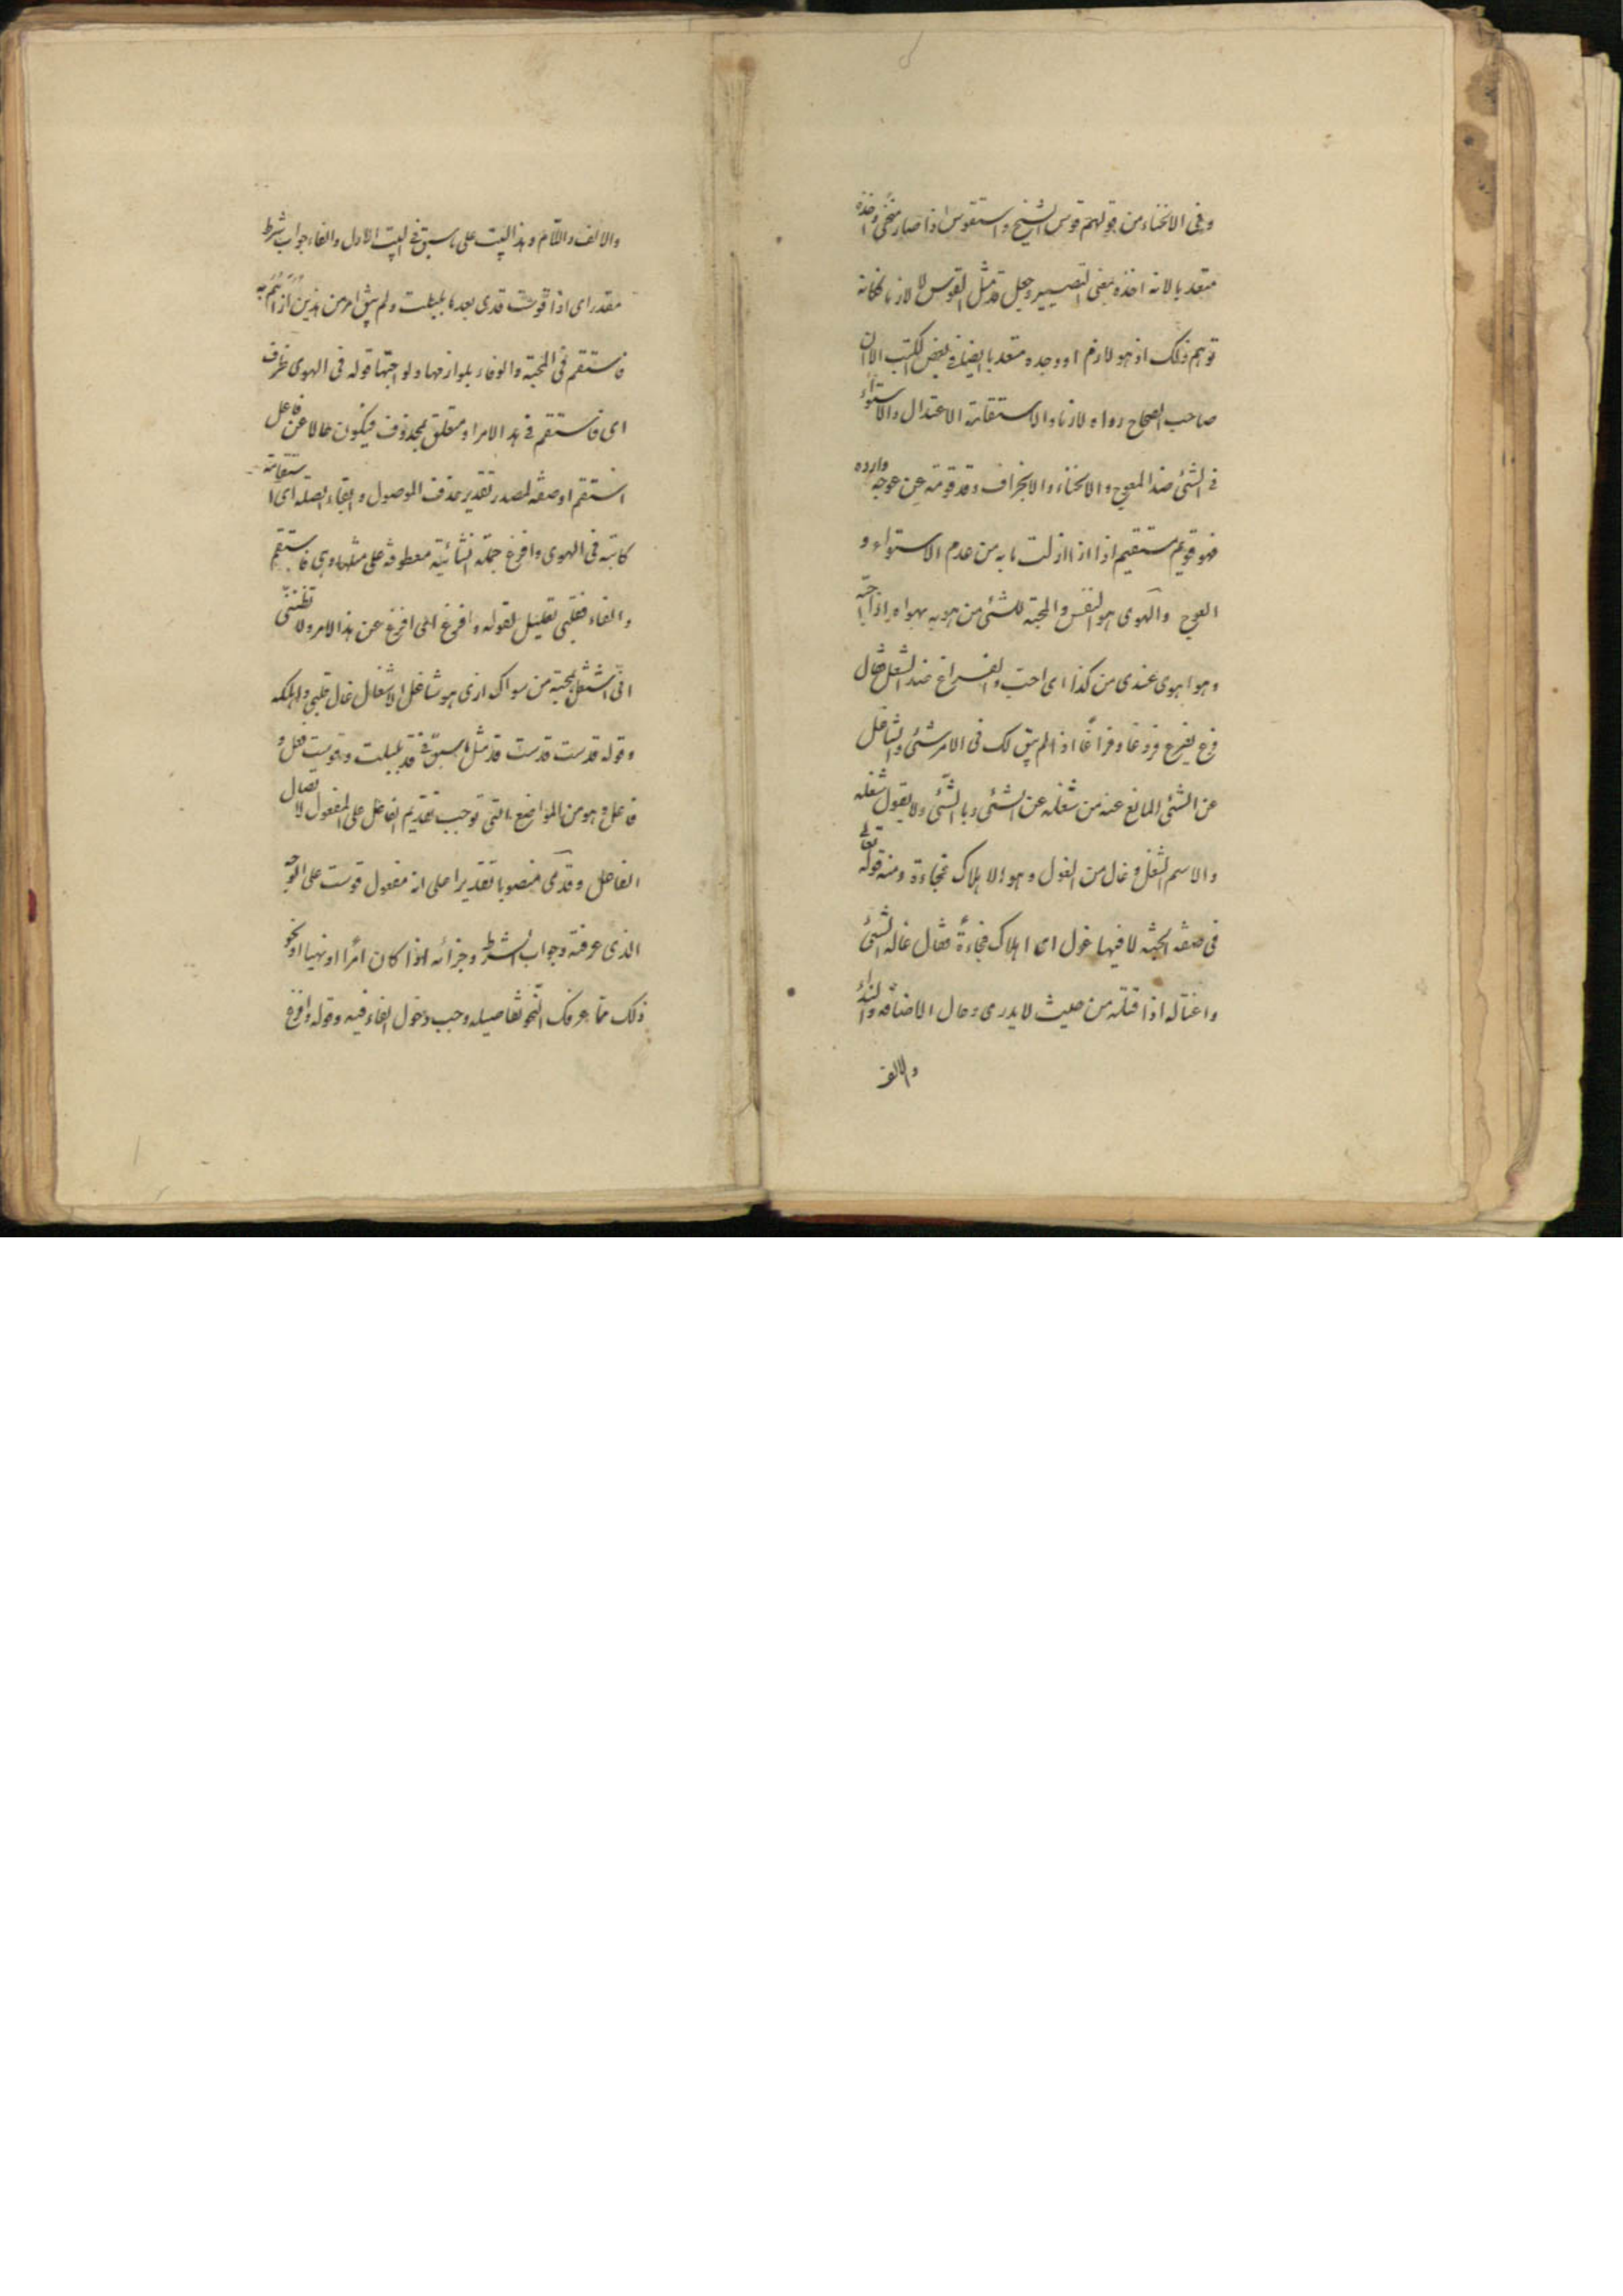 وفى الانحناء من قولهم قوس الشيخ واستقوس اذا صار منحنى واخذه
متعديا لانه اخذه بمعنى التصيير وجعل قده مثل القوس لا لازما فكانه
توهم ذلك اذ هو لازم او وجده متعديا ايضا فى بعض الكتب الا ان
صاحب الصحاح رواه لازما والاستقامة الاعتدال والاستواء
فى الشئ ضد المعوج والانحناء والانحراف وقد قومته عن عوجه وارده
فهو قويم مستقيم اذا ازلت ما به من عدم الاستواء و
العوج والهوى هو النفس والمحبة للشئ من هويه يهواه اذا احبه
وهو اهوى عندى من كذا اى احب والفراغ ضد الشغل يقال
فرغ يفرغ فروغا وفراغًا اذا لم يبق لك فى الامر شئ والشاغل
عن الشئ المانع عنه من شغله عن الشئ وبالشئ ولا يقول اشغله
والاسم الشغل وغال من الغول وهو الاهلاك فجاءة ومنه قوله تعالى
فى صفة الجنه لا فيها غول اى اهلاك فجاءةً يقال غاله الشئ
واغتاله اذا قتله من حيث لا يدرى وحال الاضافة والنداء
والالف
والالف واللام وهذا البيت على ما سبق فى البيت الاول والفاء جواب شرط
مقدر اى اذا قوست قدى بعد ما بلبلت ولم يبق امر من هذين
فاستقم فى المحبة والوفاء بلوازمها ولواحقها قوله فى الهوى ظرف
اى فاستقم فى هذا الامر او متعلق بمحذوف فيكون حالا عن فاعل
استقم او صفة لمصدر بتقدير حذف الموصول وابقاء الصلة اى استقامة
كاينة فى الهوى وافرغ جملة انشائية معطوفة على مثلها وهى فاستقم
والفاء فقلبى تعليل لقوله وافرغ اى افرغ عن هذا الامر ولا تظننى
انى اشتغل بمحبة من سواك اذ هو شاغل الاشغال غال قلبى واهلكه
وقوله قوست قدى مثل ما سبق فى قد بلبلت وقوست فعل و
فاعل وهو من المواضع التى توجب تقديم الفاعل على المفعول لاتصال
الفاعل وقدى منصوبا تقديرا على انه مفعول قوست على الوجه
الذى عرفته وجواب الشرط وجزائه اذا كان امرًا او نهيا او نحو
ذلك مما عرفك النحو تفاصيله وجب دخول الفاء فيه وقوله وافرغ